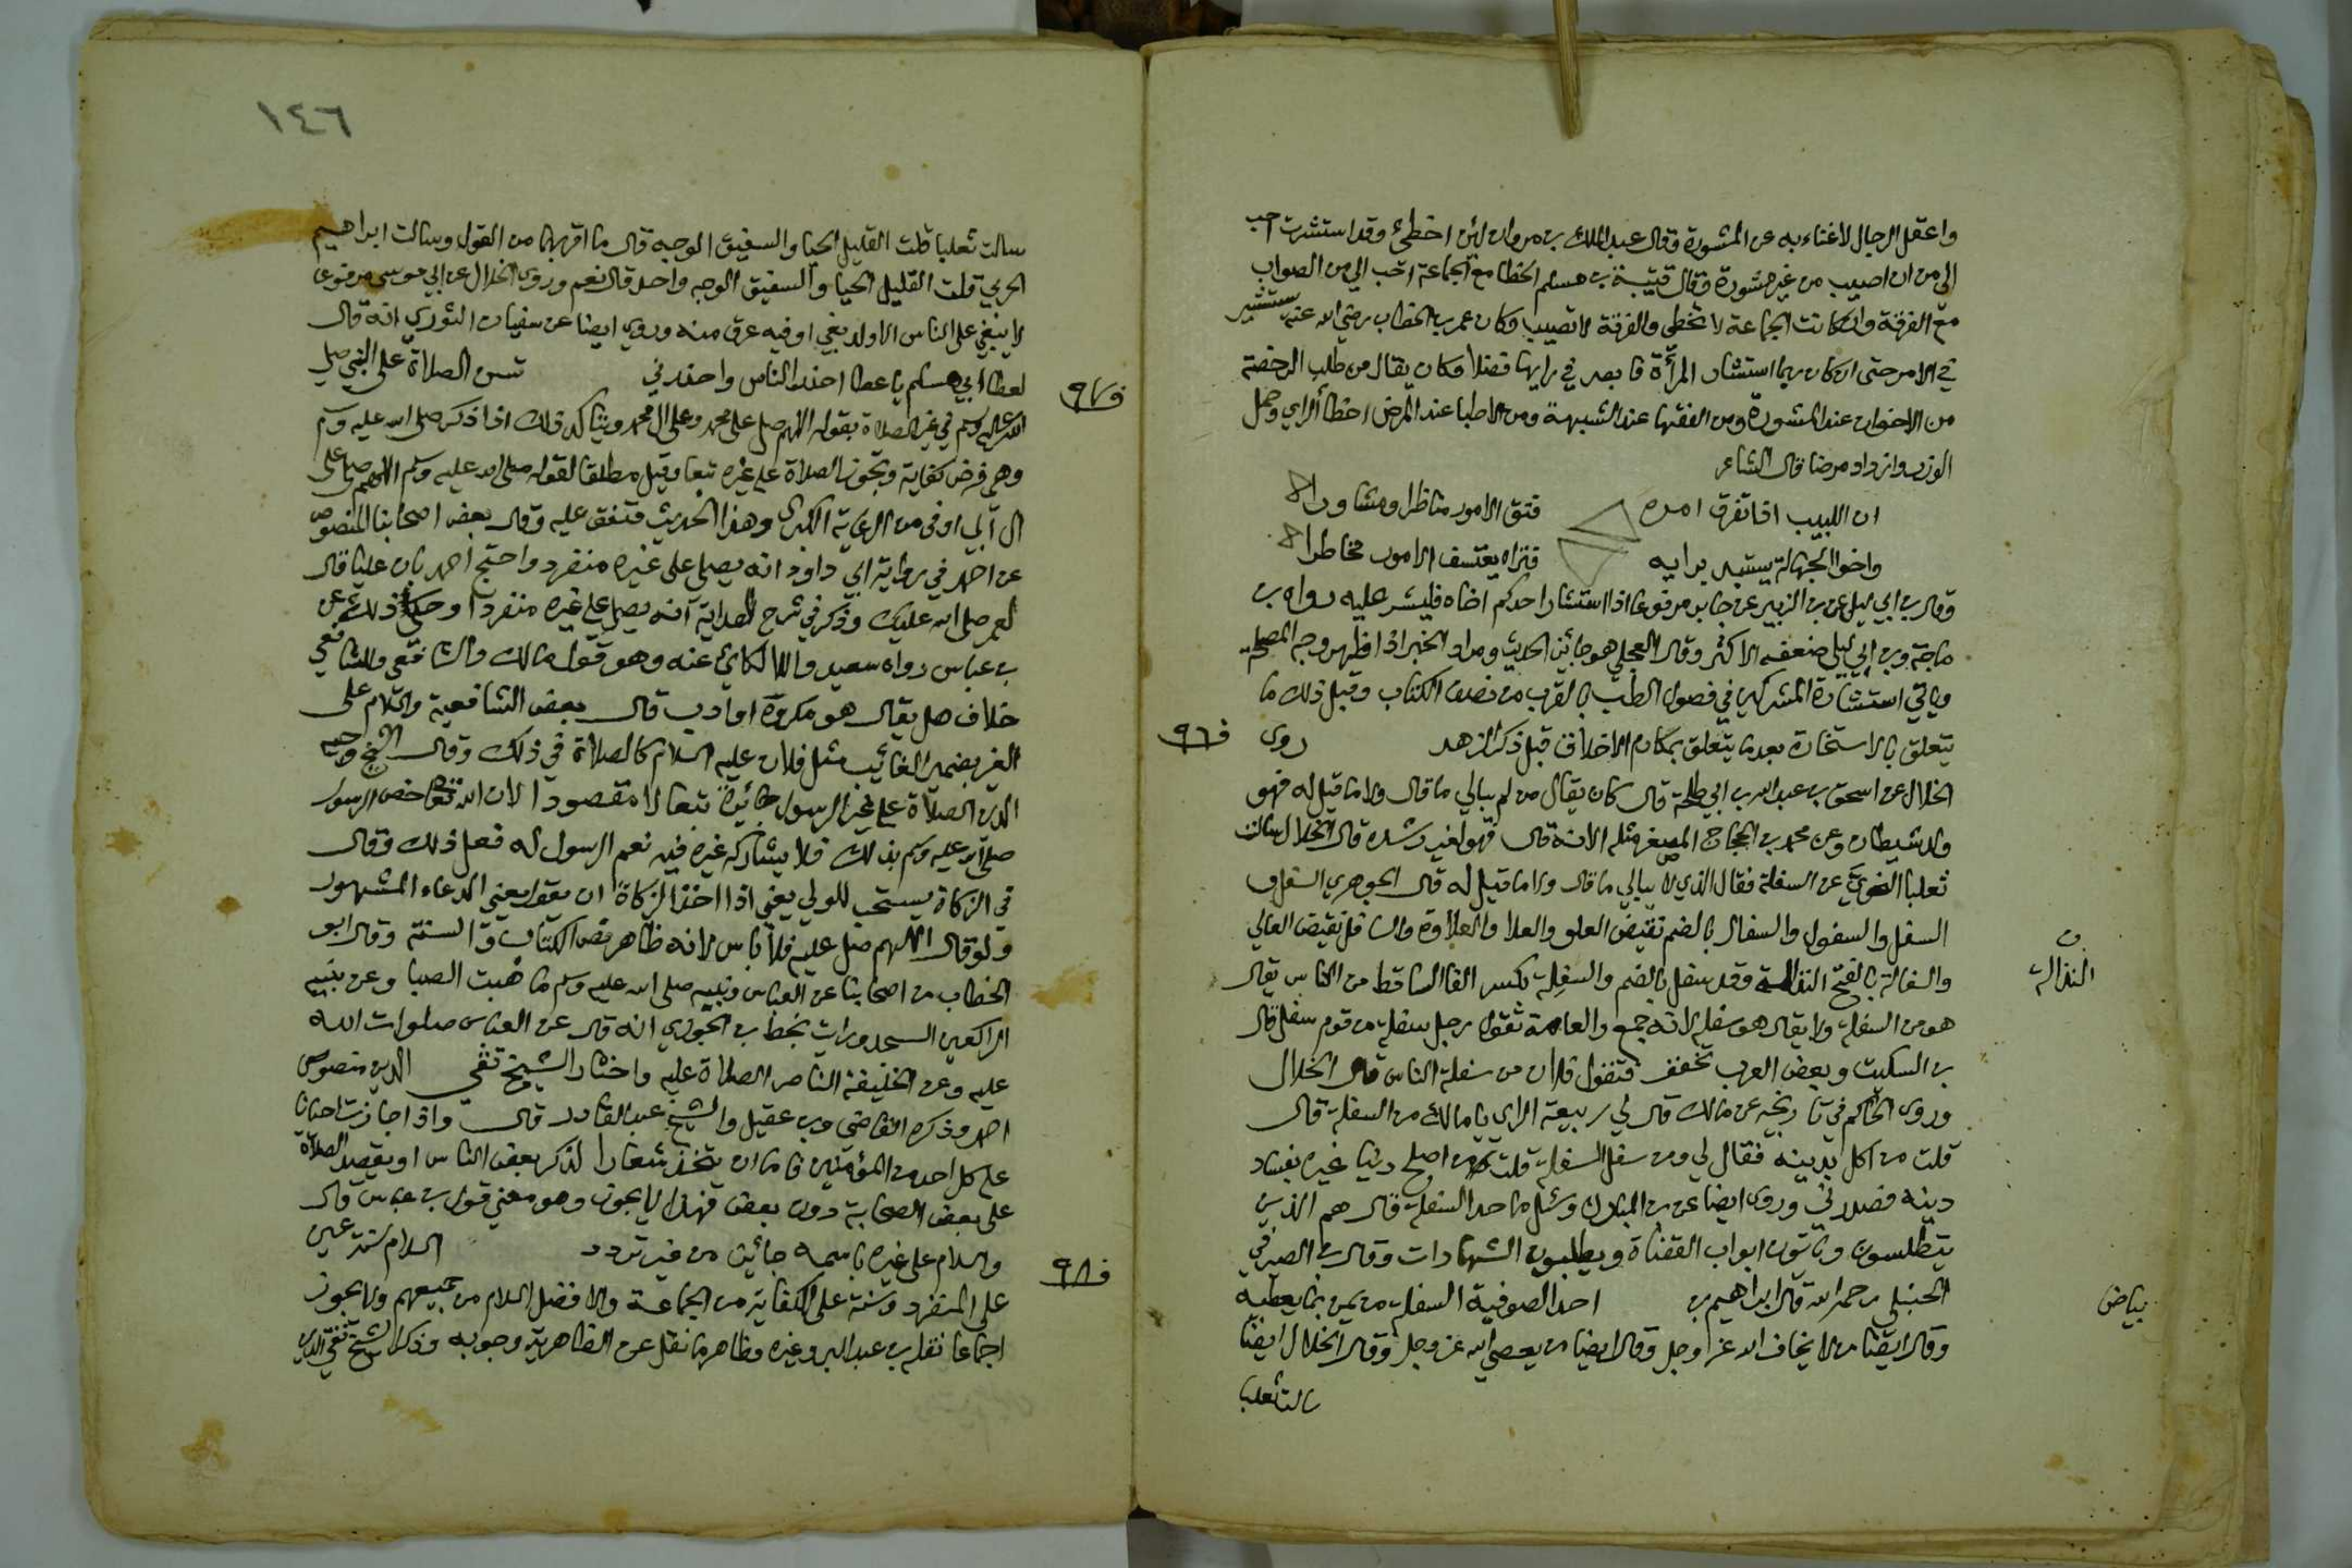 واعقل الرجال لا غناء به عن المشورة وقال عبد الملك بن مروان لئن اخطئ وقد استشرت احب
الي من ان اصيب من غير مشورة وقال قتيبة بن مسلم الخطا مع الجماعة احب الي من الصواب
مع الفرقة وان كانت الجماعة لا تخطي والفرقة لا تصيب وكان عمر بن الخطاب رضي الله عنه يستشير
في الامر حتى ان كان ربما استشار المرأة فابصر في رايها فضلا وكان يقال من طلب الرخصة
من الاخوان عند المشورة ومن الفقها عند الشبهة ومن الاطبا عند المرض اخطأ الراي وحمل
الوزر وازداد مرضا قال الشاعر
ان اللبيب اذا تفرق امره فتق الامور مناظرا ومشاورا
واخو الجهالة يستبد برايه فتراه يعتسف الامور مخاطرا
وقال بن ابي ليلى عن بن الزبير عن جابر مرفوعا اذا استشار احدكم اخاه فليشر عليه رواه بن
ماجة وبن ابي ليلى ضعفه الاكثر وقال العجلي هو جائز الحديث ومراد الخبر اذا ظهر وجه المصلحة
وياتي استشارة المشركين في فصول الطب بالقرب من نصف الكتاب وقبل ذلك ما
يتعلق بالاستخارة بعد ما يتعلق بمكارم الاخلاق قبل ذكر الزهد روى
ف٩٦
الخلال عن اسحق بن عبد الله بن ابي طلحة قال كان يقال من لم يبالي ما قال ولا ما قيل له فهو
ولد شيطان وعن محمد بن الحجاج المصفر مثله الا انه قال فهو لغير رشده قال الخلال سالت
ثعلبا النحوي عن السفلة فقال الذي لا يبالي ما قال ولا ما قيل له قال الجوهري السفل و
السفل والسفول والسفال بالضم نقيض العلو والعلا والعلاوة والسافل نقيض العالي
والسفالة بالفتح النذالة وقد سفل بالضم والسفلة بكسر الفا الساقط من الناس يقال
ن
النذالة
هو من السفلة ولا يقال هو سفلة لانه جمع والعامة تقول رجل سفلة من قوم سفل قال
بن السكيت وبعض العرب تخفف فتقول فلان من سفلة الناس قال الخلال
وروى الحاكم في تاريخه عن مالك قال لي ربيعة الراي يا مالك من السفلة قال
قلت من اكل بدينه فقال لي ومن سفل السفلة قلت من اصلح دنيا غيره بفساد
دينه فصدرني وروى ايضا عن بن المبارك وسئل ما حد السفلة قال هم الذين
يتطلسون وياتون ابواب القضاة ويطلبون الشهادات وقال بن الصيرفي
الحنبلي رحمه الله قال ابراهيم بن احد الصوفية السفلة من يمن بما يعطيه
بياض
وقال ايضا من لا يخاف الله عز وجل وقال ايضا من يعصي الله عز وجل وقال الخلال ايضا
سالت ثعلبا
١٤٦
سالت ثعلبا قلت القليل الحيا والسفيق الوجه قال ما اقربهما من القول وسالت ابراهيم
الحربي قلت القليل الحيا والسفيق الوجه واحد قال نعم وروى الخلال عن ابي موسى مرفوعا
لا يبغي على الناس الا ولد بغي او فيه عرق منه وروى ايضا عن سفيان الثوري انه قال
لعطا ابي مسلم يا عطا احذر الناس واحذرني تسن الصلاة على النبي صلى
ف٩٧
الله عليه وسلم في غير الصلاة بقوله اللهم صل على محمد وعلى ال محمد ويتاكد ذلك اذا ذكر صلى الله عليه وسلم
وهي فرض كفاية وتجوز الصلاة على غيره تبعا وقيل مطلقا لقوله صلى الله عليه وسلم اللهم صل على
ال ابي اوفى وهذا الحديث متفق عليه وقال بعض اصحابنا المنصوص
عن احمد في رواية ابي داود انه يصلي على غيره منفردا واحتج احمد بان عليا قال
لعمر صلى الله عليك وذكر في شرح الهداية انه لا يصلي على غيره منفردا وحكي ذلك عن
بن عباس رواه سعيد واللالكائي عنه وهو قول مالك والشافعي وللشافعي
خلاف هل يقال هو مكروه او ادب قال بعض الشافعية والسلام على
الغير بضمير الغائب مثل فلان عليه السلام كالصلاة في ذلك وقال الشيخ وجيه
الدين الصلاة على غير الرسول جائزة تبعا لا مقصودا لان الله تعالى خص الرسول
صلى الله عليه وسلم بذلك فلا يشاركه غيره فيه نعم الرسول له فعل ذلك وقال
في الزكاة يستحب للولي يعني اذا اخذ الزكاة ان يقول يعني الدعاء المشهور
ولو قال اللهم صل عليه فلا باس لانه ظاهر نص الكتاب والسنة وقال ابو
الخطاب من اصحابنا عن العباس ونبيه صلى الله عليه وسلم ما هبت الصبا وعن بنيه
الراكعين السجد ورايت بخط بن الجوزي انه قال عن العباس صلوات الله
عليه وعن الخليفة الناصر الصلاة عليه واختار الشيخ تقي الدين منصوص
احمد وذكره القاضي وبن عقيل والشيخ عبد القادر قال واذا جازت احيانا
على كل احد من المؤمنين فاما ان يتخذ شعارا لذكر بعض الناس او يقصد الصلاة
على بعض الصحابة دون بعض فهذا لا يجوز وهو معنى قول بن عباس قال
والسلام على غيره باسمه جائز من غير تردد السلام سنة عين
ف٩٨
على المنفرد وسنة على الكفاية من الجماعة والافضل السلام من جميعهم ولا يجوز
اجماعا نقله بن عبد البر وغيره وظاهر ما نقل عن الظاهرية وجوبه وذكر الشيخ تقي الدين